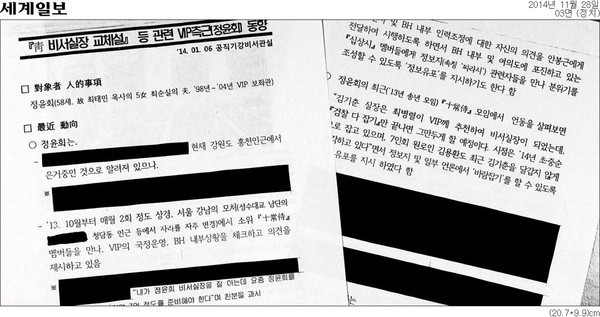 세계일보
2014년 11월 28일
03면 (정치)
『靑 비서실장 교체설』 등 관련 VIP측근(정윤회) 동향
'14. 01. 06 공직기강비서관실
□ 對象者 人的事項
정윤회(58세, 故 최태민 목사의 5女 최순실의 夫, '98년~'04년 VIP 보좌관)
□ 最近 動向
○ 정윤회는,
- 현재 강원도 홍천인근에서
은거중인 것으로 알려져 있으나,
※
- '13. 10월부터 매월 2회 정도 상경, 서울 강남의 모처(성수대교 남단의
청담동 인근 등에서 자리를 자주 변경)에서 소위 『十常侍』
멤버들을 만나, VIP의 국정운영, BH 내부상황을 체크하고 의견을
제시하고 있음
※ "내가 정윤회 비서실장을 잘 아는데 요즘 정윤회를
정도를 준비해야 한다"며 친분을 과시
및 BH 내부 인력조정에 대한 자신의 의견을 안봉근에게
전달하여 시행하도록 하면서 BH 내부 및 여의도에 포진하고 있는
『십상시』 멤버들에게 정보지(속칭 '찌라시') 관련자들을 만나 분위기를
조성할 수 있도록 '정보유포'를 지시하기도 한다 함
○ 정윤회의 최근('13년 송년 모임) 『十常侍』 모임에서 언동을 살펴보면
"김기춘 실장은 최병렬이 VIP께 추천하여 비서실장이 되었는데,
『검찰 다 잡기』만 끝나면 그만두게 할 예정이다. 시점은 '14년 초중순
으로 잡고 있으며, 7인회 원로인 김용환도 최근 김기춘을 달갑지 않게
하고 있다"면서 정보지 및 일부 언론에서 '바람잡기'를 할 수 있도록
유포를 지시 하였다 함
(20.7*9.9)cm